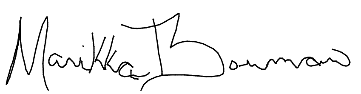 Marikka Bouman